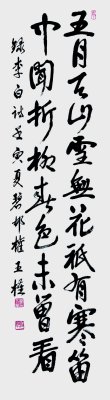 五月天山雪無花祇有寒笛
中聞折柳春色未曾看
錄李白詩壬寅夏